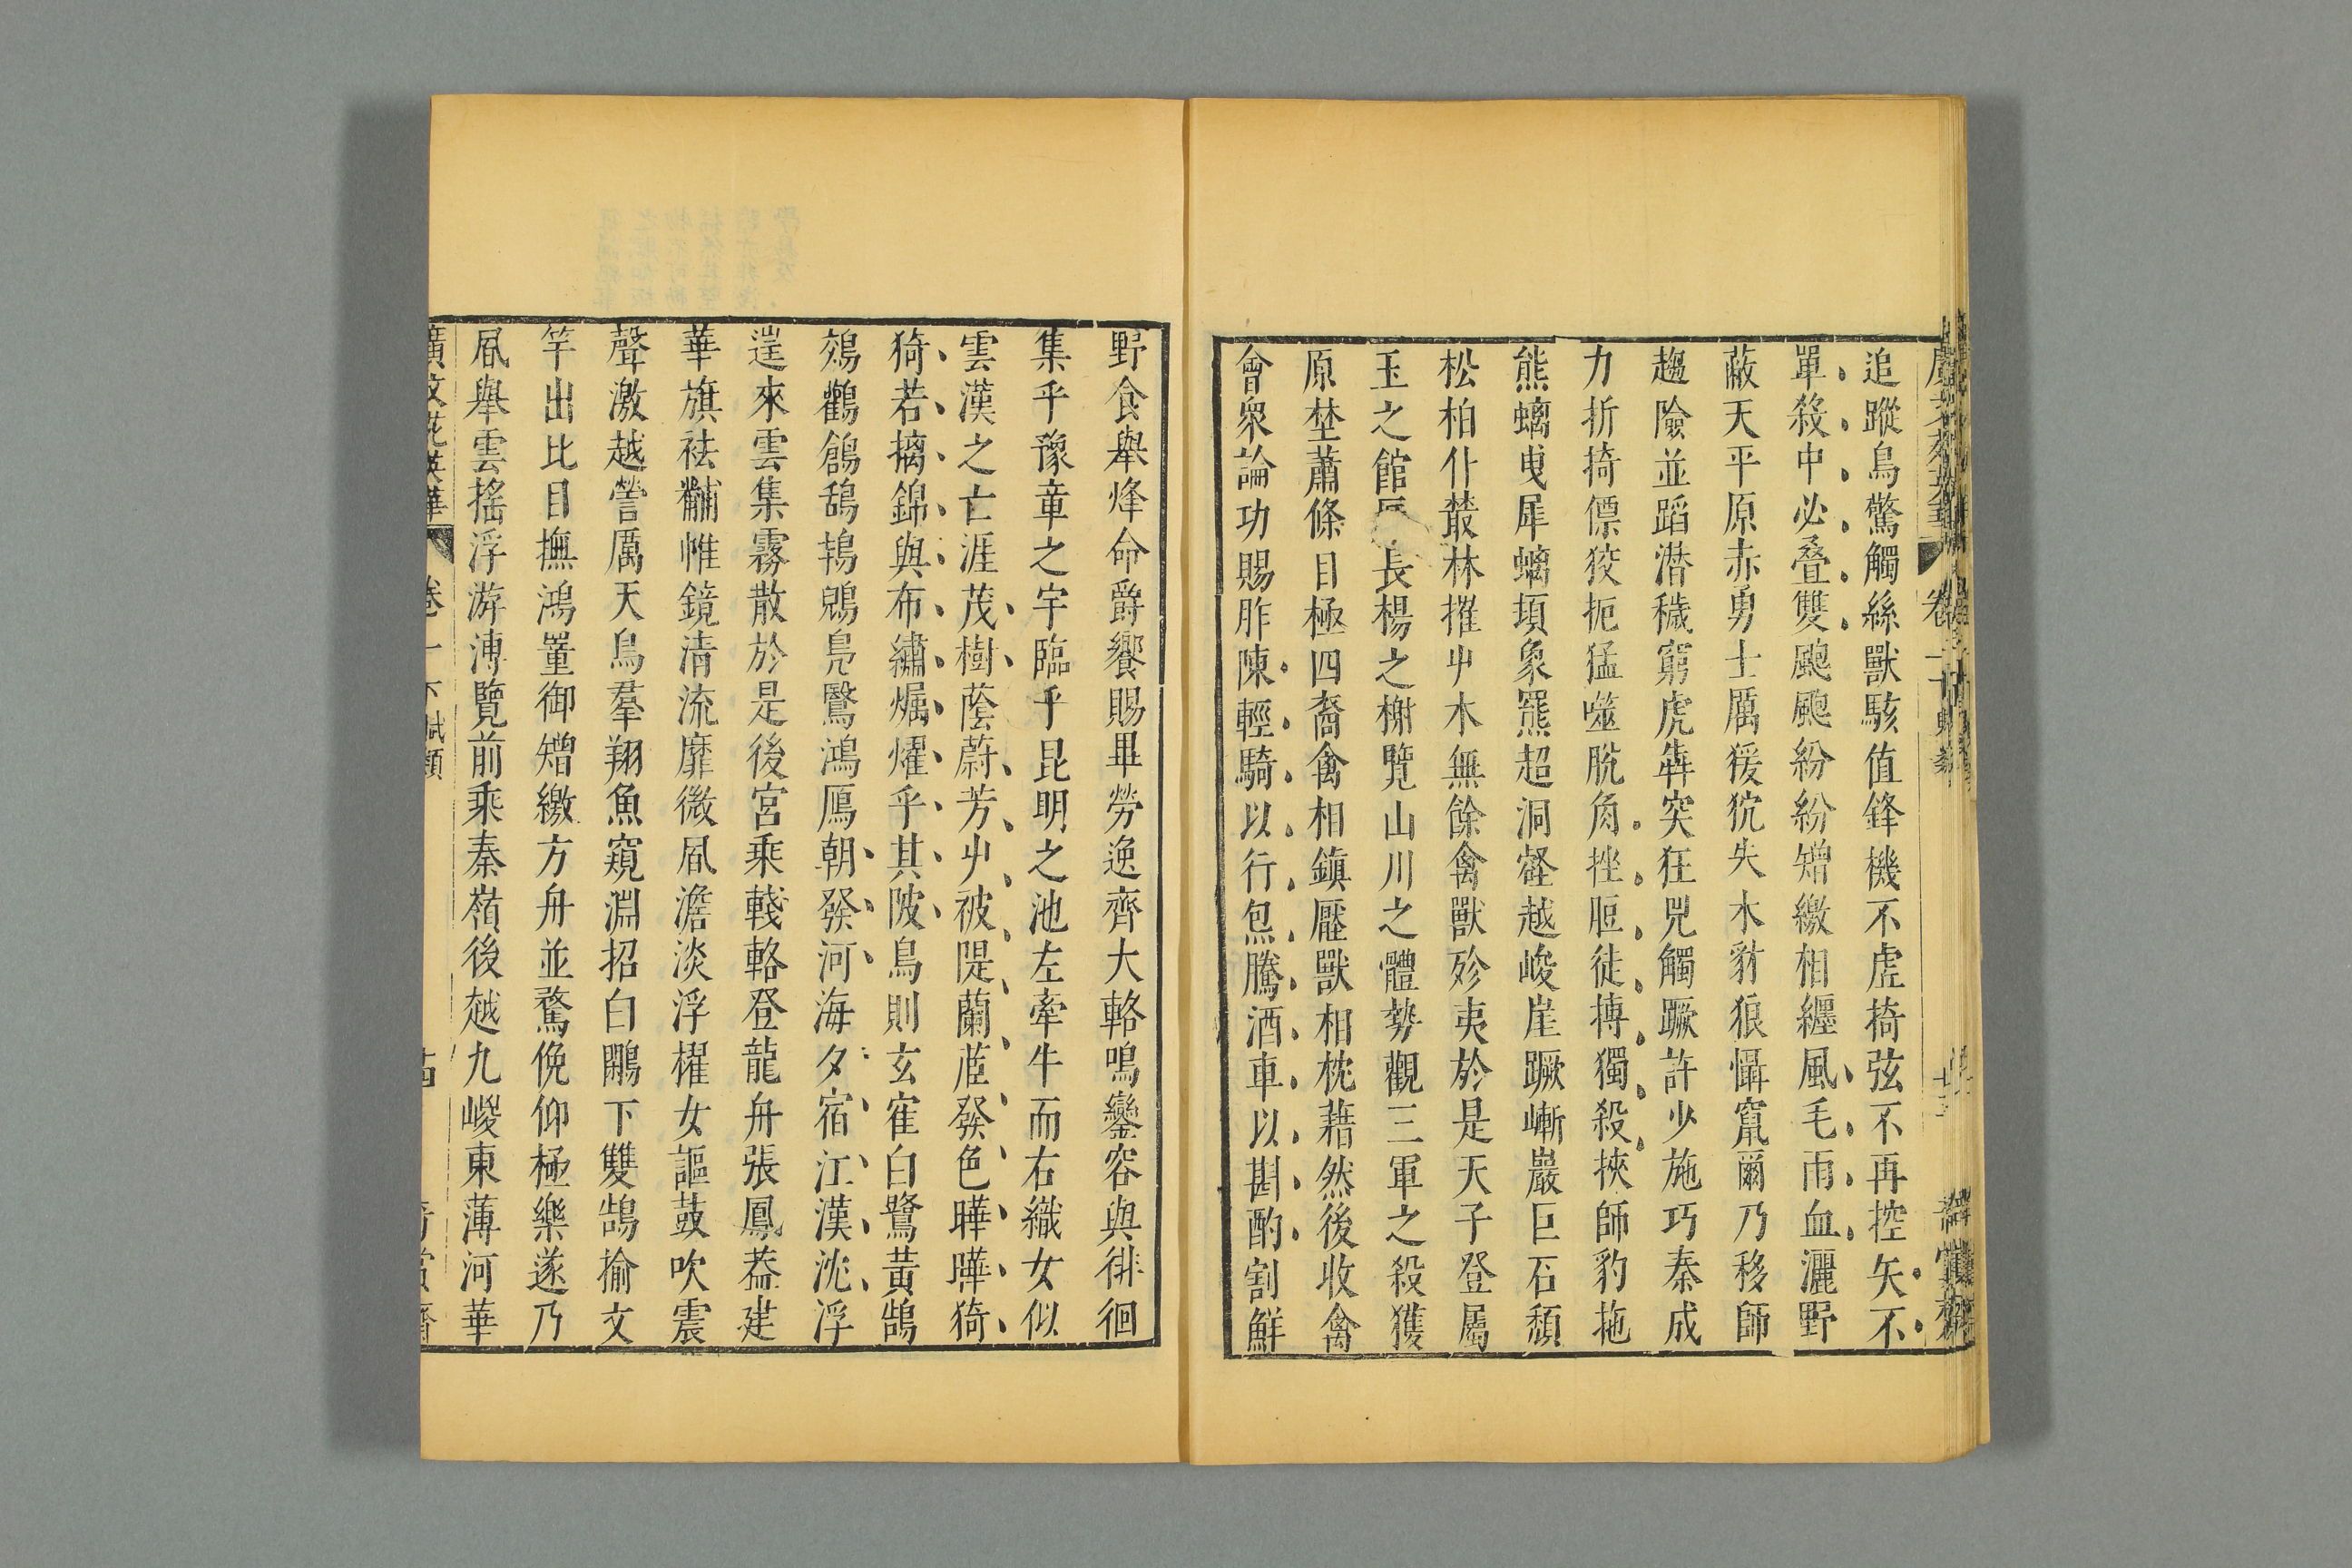 追蹤鳥驚觸絲獸駭值鋒機不虛掎弦不再控矢不
單殺中必疊雙颮颮紛紛矰繳相纏風毛雨血灑野
蔽天平原赤勇士厲猨狖失木豺狼懾竄爾乃移師
趨險並蹈潛穢窮虎犇突狂兕觸蹶許少施巧秦成
力折掎僄狡扼猛噬脫角挫脰徒搏獨殺挾師豹拖
熊螭曳犀犛頓象羆超洞壑越峻崖蹶嶄巖巨石頹
松柏仆叢林摧屮木無餘禽獸殄夷於是天子登屬
玉之館歷長楊之榭覽山川之體勢觀三軍之殺獲
原埜蕭條目極四裔禽相鎮壓獸相枕藉然後收禽
會衆論功賜胙陳輕騎以行炰騰酒車以斟酌割鮮
野食舉烽命爵饗賜畢勞逸齊大輅鳴鑾容與徘徊
集乎豫章之宇臨乎昆明之池左牽牛而右織女似
雲漢之亡涯茂樹蔭蔚芳屮被隄蘭茝發色曄曄猗
猗若摛錦與布繡爥燿乎其陂鳥則玄隺白鷺黃鵠
鵁鸛鶬鴰鴇鶂鳧鷖鴻鴈朝發河海夕宿江漢沈浮
遑來雲集霧散於是後宮乘輚輅登龍舟張鳳葢建
華旗祛黼帷鏡清流靡微凮澹淡浮櫂女謳鼓吹震
聲激越謍厲天鳥羣翔魚窺淵招白鷴下雙鵠揄文
竿出比目撫鴻罿御矰繳方舟並騖俛仰極樂遂乃
凮舉雲搖浮游溥覽前乘秦嶺後越九嵕東薄河華
廣文苑英華 卷一下 賦類 十四